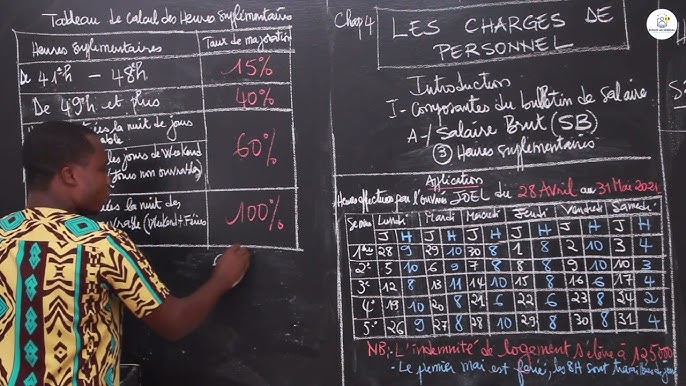 Tableau de calcul des Heures Suplémentaires
Heures Suplementaires Taux de majoration
De 41e h – 48e h 15%
De 49e h et plus 40%
la nuit de jours
able
les jours de Weekend
jours non ouvrable) 60%
les la nuit des
(Weekend+Féries 100%
Chap4 LES CHARGES DE
PERSONNEL
Introduction
I- Composantes du bulletin de Salaire
A-/ Salaire Brut (SB)
③ Heures suplementaires
Application
Heures effectuées par l'ouvrier JOEL du 28 Avril au 31 Mai 2021
Semaine Lundi Mardi Mercredi Jeudi Vendredi Samedi
J H J H J H J H J H J H
1ère 28 9 29 10 30 8 1 8 2 10 3 4
2e 5 10 6 9 7 8 8 8 9 10 10 3
3e 12 8 13 11 14 10 15 8 16 6 17 4
4e 19 10 20 8 21 6 22 6 23 8 24 2
5e 26 9 27 8 28 10 29 8 30 8 31 4
NB: - L'indemnité de logement s'élève à 125000
- Le premier mai est férié, les 8H sont travaillées de jour